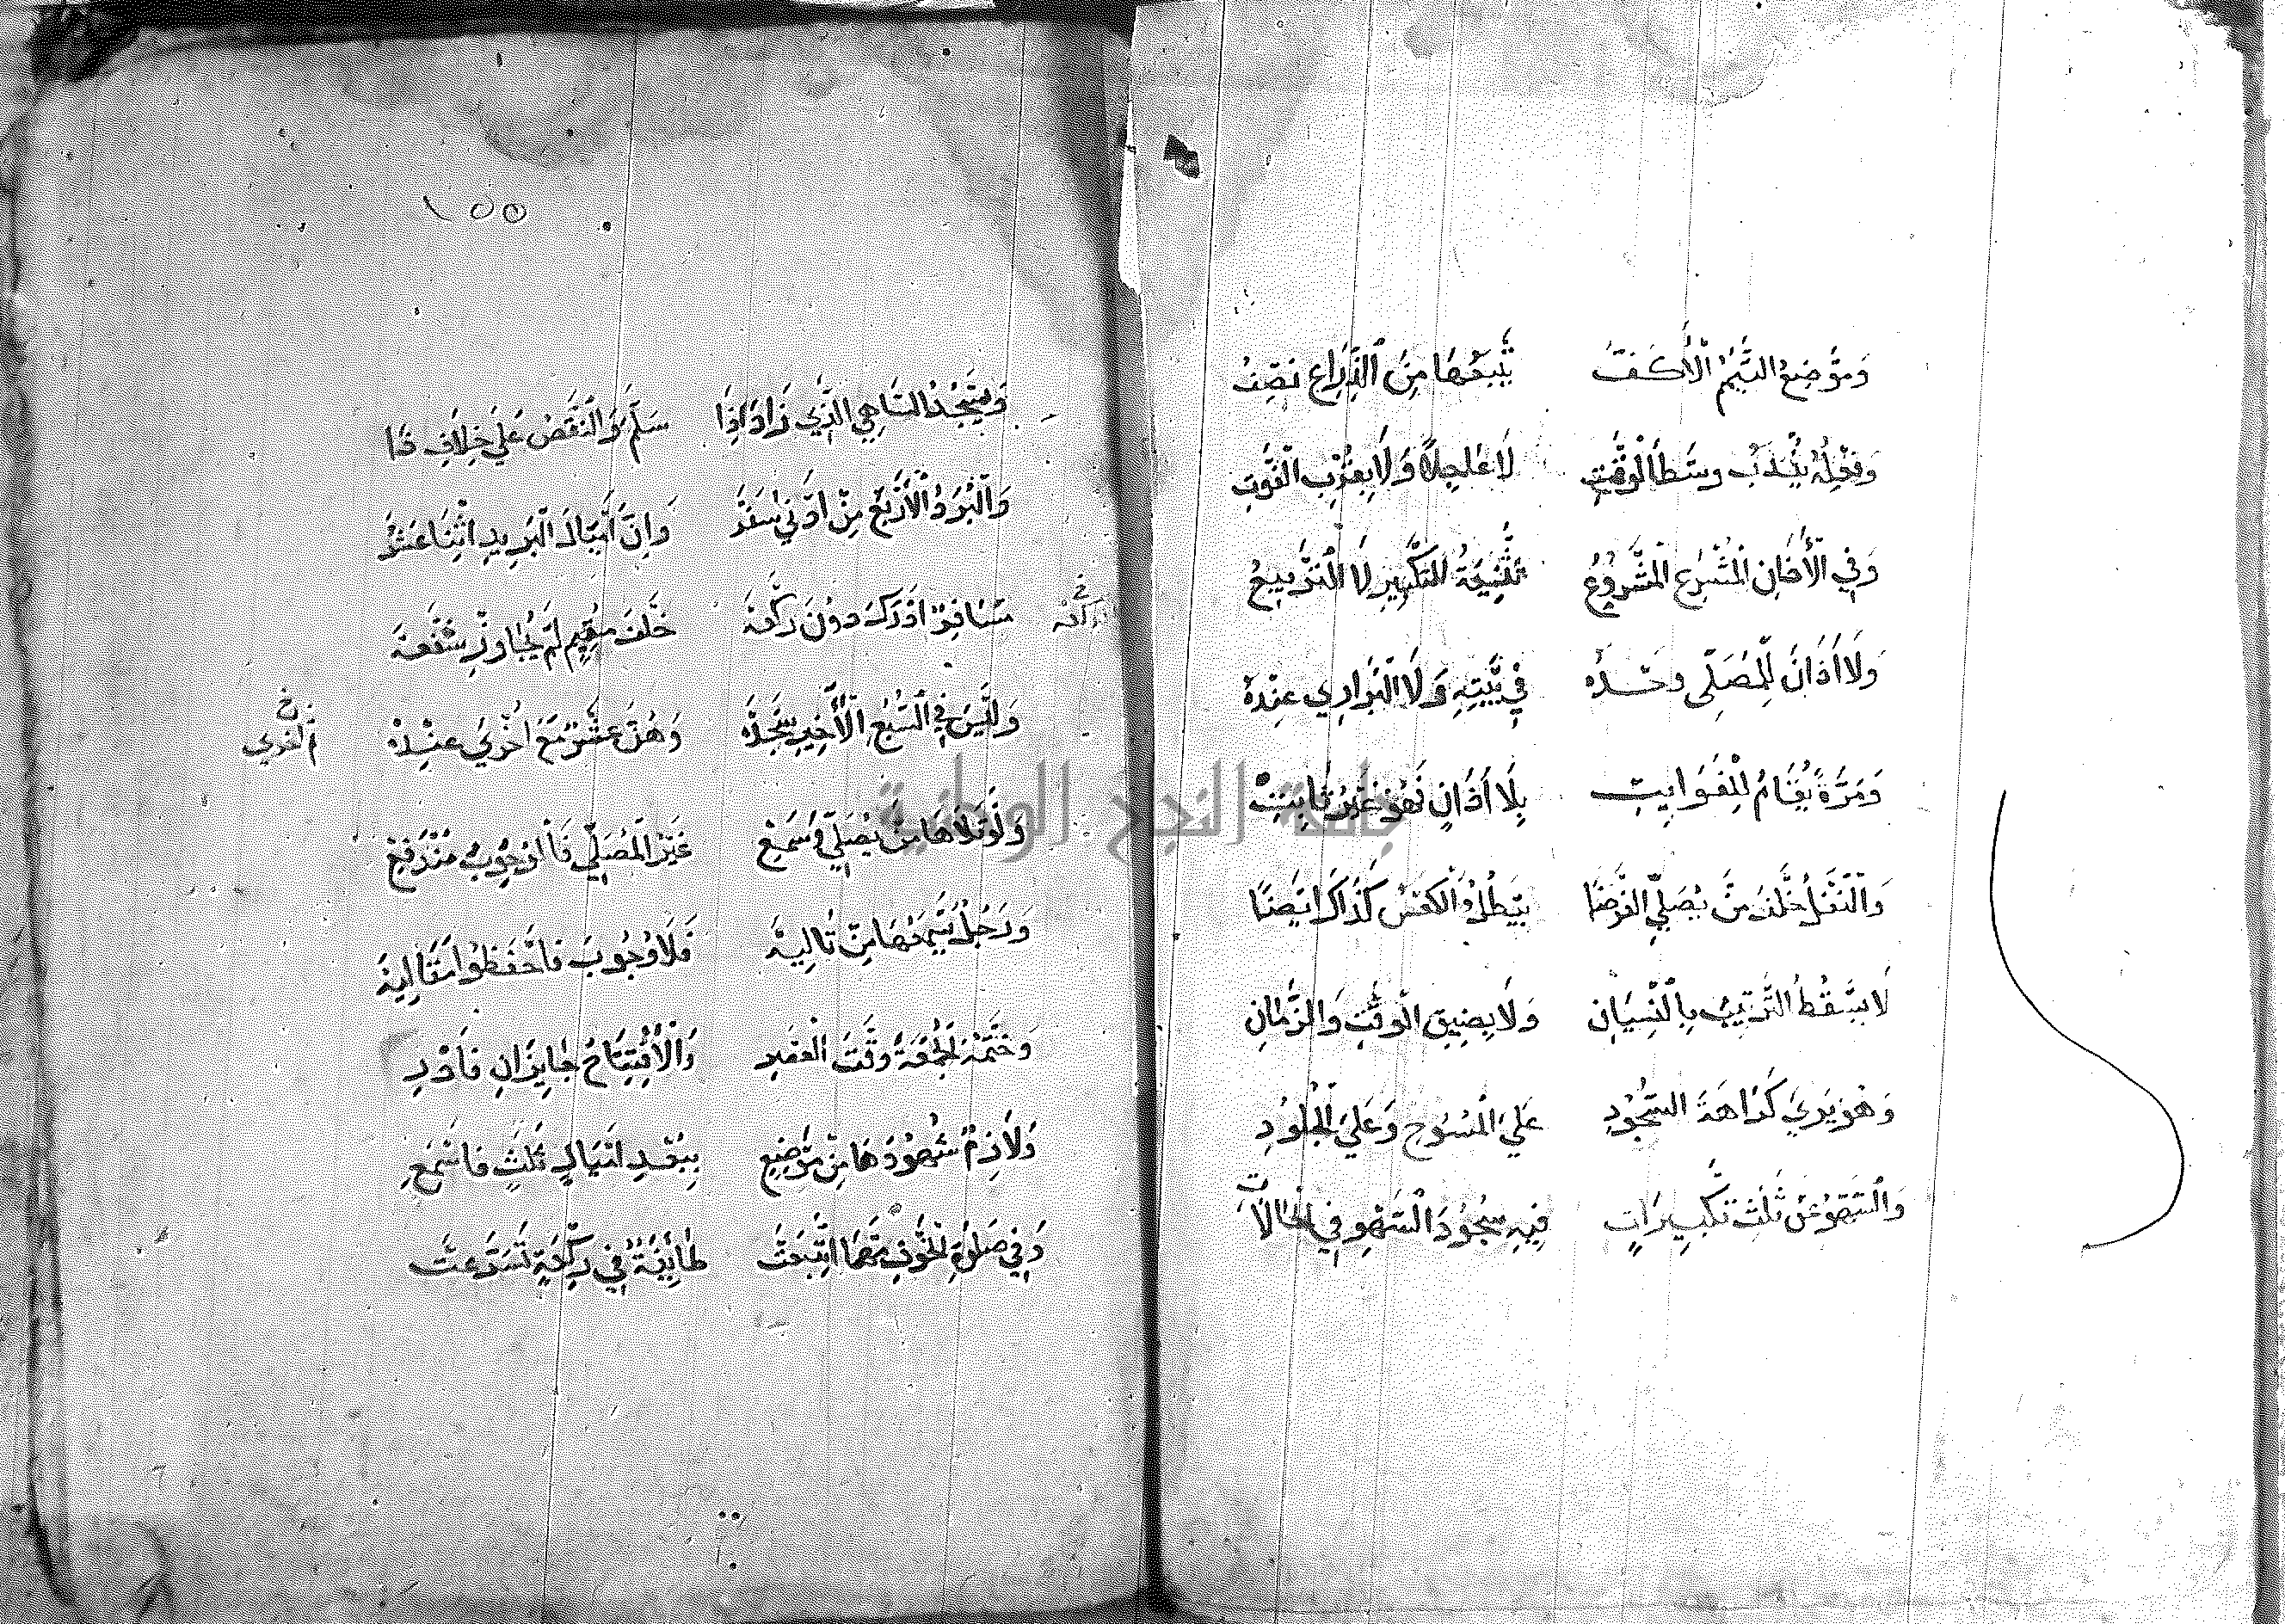 وَمَوْضِعُ التَّيَمُّمِ الْأَكُفُّ يَتْبَعُهَا مِنَ الذِّرَاعِ نِصْفُ
وَفِعْلُهُ يُنْدَبُ وسْطَ الْوَقْتِ لَا عَاجِلًا وَلَا بِقُرْبِ الْفَوْتِ
وَفِي الْأَذَانِ الْمُشْرَعِ الْمَشْرُوعُ تَثْنِيَةُ التَّكْبِيرِ لَا التَّرْبِيعُ
وَلَا أَذَانَ لِلْمُصَلِّي وَحْدَهُ فِي بَيْتِهِ وَلَا الْبَوَادِي عِنْدَهُ
وَمَرَّةً يُقَامُ لِلْفَوَايِتِ بِلَا أَذَانٍ فَهْوَ غَيْرُ ثَابِتِ
وَالنَّفْلُ خَلْفَ مَنْ يُصَلِّي الْفَرْضَا يَبْطُلُ وَالْعَكْسُ كَذَاكَ أَيْضًا
لَا يَسْقُطُ التَّرْتِيبُ بِالنِّسْيَانِ وَلَا بِضِيقِ الْوَقْتِ وَالزَّمَانِ
وَهْوَ يَرَى كَرَاهَةَ السُّجُودِ عَلَى الْمُسُوحِ وَعَلَى الْجُلُودِ
وَالسَّهْوُ عَنْ ثَلَثِ تَكْبِيرَاتٍ فِيهِ سُجُودُ السَّهْوِ فِي الْحَالَاتِ
١٥٥
وَيَسْجُدُ السَّاهِي الَّذِي زَادَ إِذَا سَلَّمَ وَالنَّقْصُ عَلَى خِلَافِ ذَا
وَالْبُرُدُ الْأَرْبَعُ مِنْ أَدْنَى سَفَرْ وَإِنَّ أَمْيَالَ الْبَرِيدِ اثْنَا عَشَرْ
مُسَافِرٌ أَدْرَكَ دُونَ رَكْعَهْ خَلْفَ مُقِيمٍ لَمْ يُجَاوِزْ شَفْعَهْ
رَكْعَه
وَلَيْسَ فِي السُّبْعِ الْأَخِيرِ سَجْدَهْ وَهُنَّ عَشْرٌ مَعَ أُخْرَى عِنْدَهْ
وَلَوْ تَلَاهَا مَنْ يُصَلِّي وَسَمِعْ غَيْرُ الْمُصَلِّي فَالْوُجُوبُ مُنْدَفِعْ
وَرَجُلٌ يَسْمَعُهَا مِنْ تَالِيَهْ فَلَا وُجُوبَ فَاحْفَظُوا مَقَالِيَهْ
وَخَتْمُهُ الْجُمْعَةَ وَقْتَ الْعَصْرِ وَالْأِفْتِتَاحُ جَايِزَانِ فَادْرِ
وَلَازِمٌ شُهُودُهَا مِنْ مَوْضِعِ بِبُعْدِ أَمْيَالٍ ثَلَثٍ فَاسْمَعِ
وَفِي صَلَوةِ الْخَوْفِ مَهْمَا اتَّبَعَتْ طَائِفَةٌ فِي رَكْعَةٍ تَسَرَّعَتْ
جامعة النجاح الوطنية